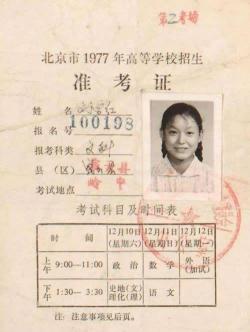 第二考场
北京市1977年高等学校招生
准考证
姓名
报名号 100198
报考科类 文科
县(区)
考试地点 岭中
考试科目及时间表
时间 12月10日(星期六) 12月11日(星期日) 12月12日(星期一)
上午 9:00—11:00 政治 数学 外语(加试)
下午 1:30—3:30 史地(文) 理化(理) 语文
注:注意事项见后页。